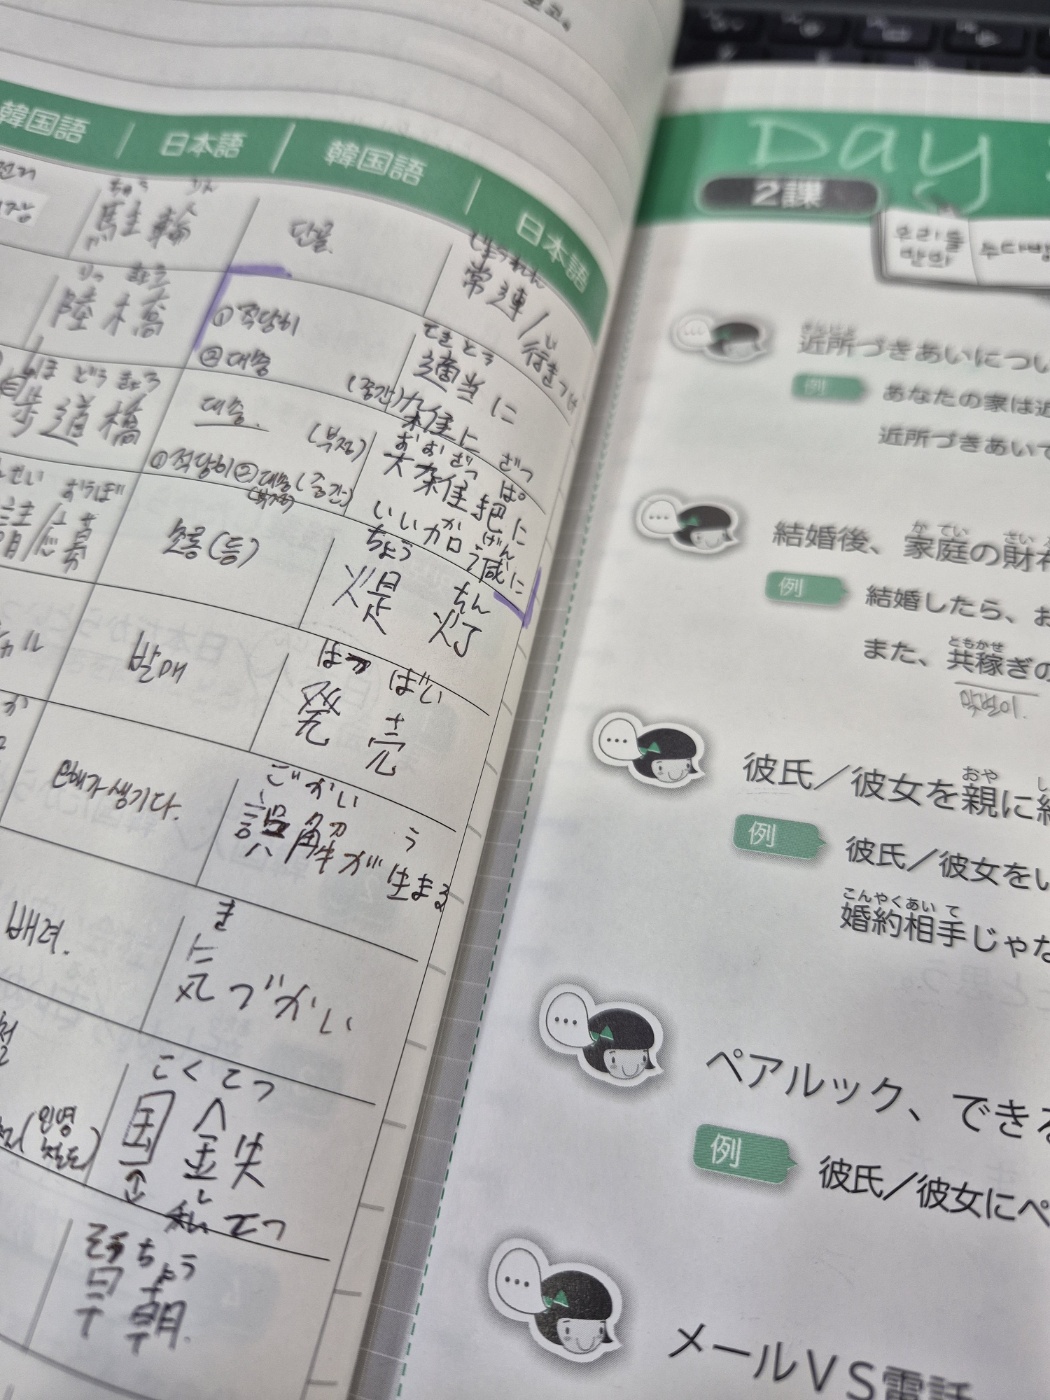 韓国語 | 日本語 | 韓国語 | 日本語
ちゅう りん
駐輪
단골
じょうれん
常連/行きつけ
りっ きょう
陸橋
①적당히
②대충
てき とう
適当に
ほ どう きょう
歩道橋
대충
(부정)
①적당히②대충(중간)
(중간)雑に
おお ざっ ぱ
大雑把に
いい か げん
いい加減に
おうぼ
請/応募
초롱(등)
ちょう ちん
提灯
발매
はつ ばい
発売
오해가생기다.
ご かい う
誤解が生まる
배려.
き
気づかい
こく てつ
国鉄
↕
し てつ
私
そう ちょう
早朝
Day
2課
우리들
만의
近所づきあいについ
例 あなたの家は近
近所づきあいで
か てい さい
結婚後、家庭の財布
例 結婚したら、お
ともかせ
また、共稼ぎの
맞벌이.
おや
彼氏/彼女を親に
例 彼氏/彼女をい
こんやくあい て
婚約相手じゃな
ペアルック、でき
例 彼氏/彼女にペ
メールVS電話